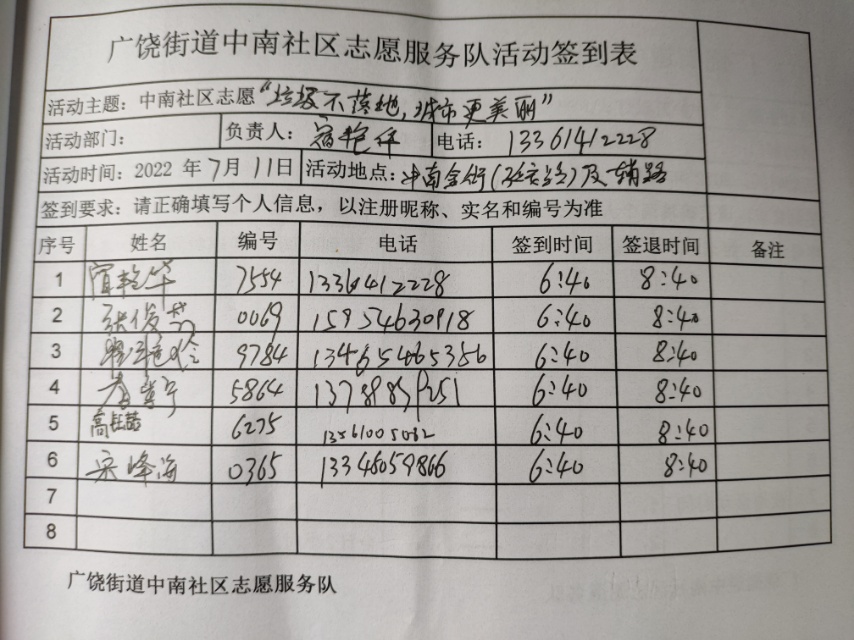 广饶街道中南社区志愿服务队活动签到表
活动主题：中南社区志愿“垃圾不落地，城市更美丽”
活动部门： 负责人：宿艳华 电话：13361412228
活动时间：2022 年 7 月 11 日 活动地点：中南会街(延安路)及辅路
签到要求：请正确填写个人信息，以注册昵称、实名和编号为准
序号 姓名 编号 电话 签到时间 签退时间 备注
1 宿艳华 7554 13361412228 6:40 8:40
2 张俊芳 0069 15954630918 6:40 8:40
3 9784 13465465386 6:40 8:40
4 5864 6:40 8:40
5 高钰喆 6275 13561005082 6:40 8:40
6 宋峰海 0365 13346059866 6:40 8:40
7
8
广饶街道中南社区志愿服务队